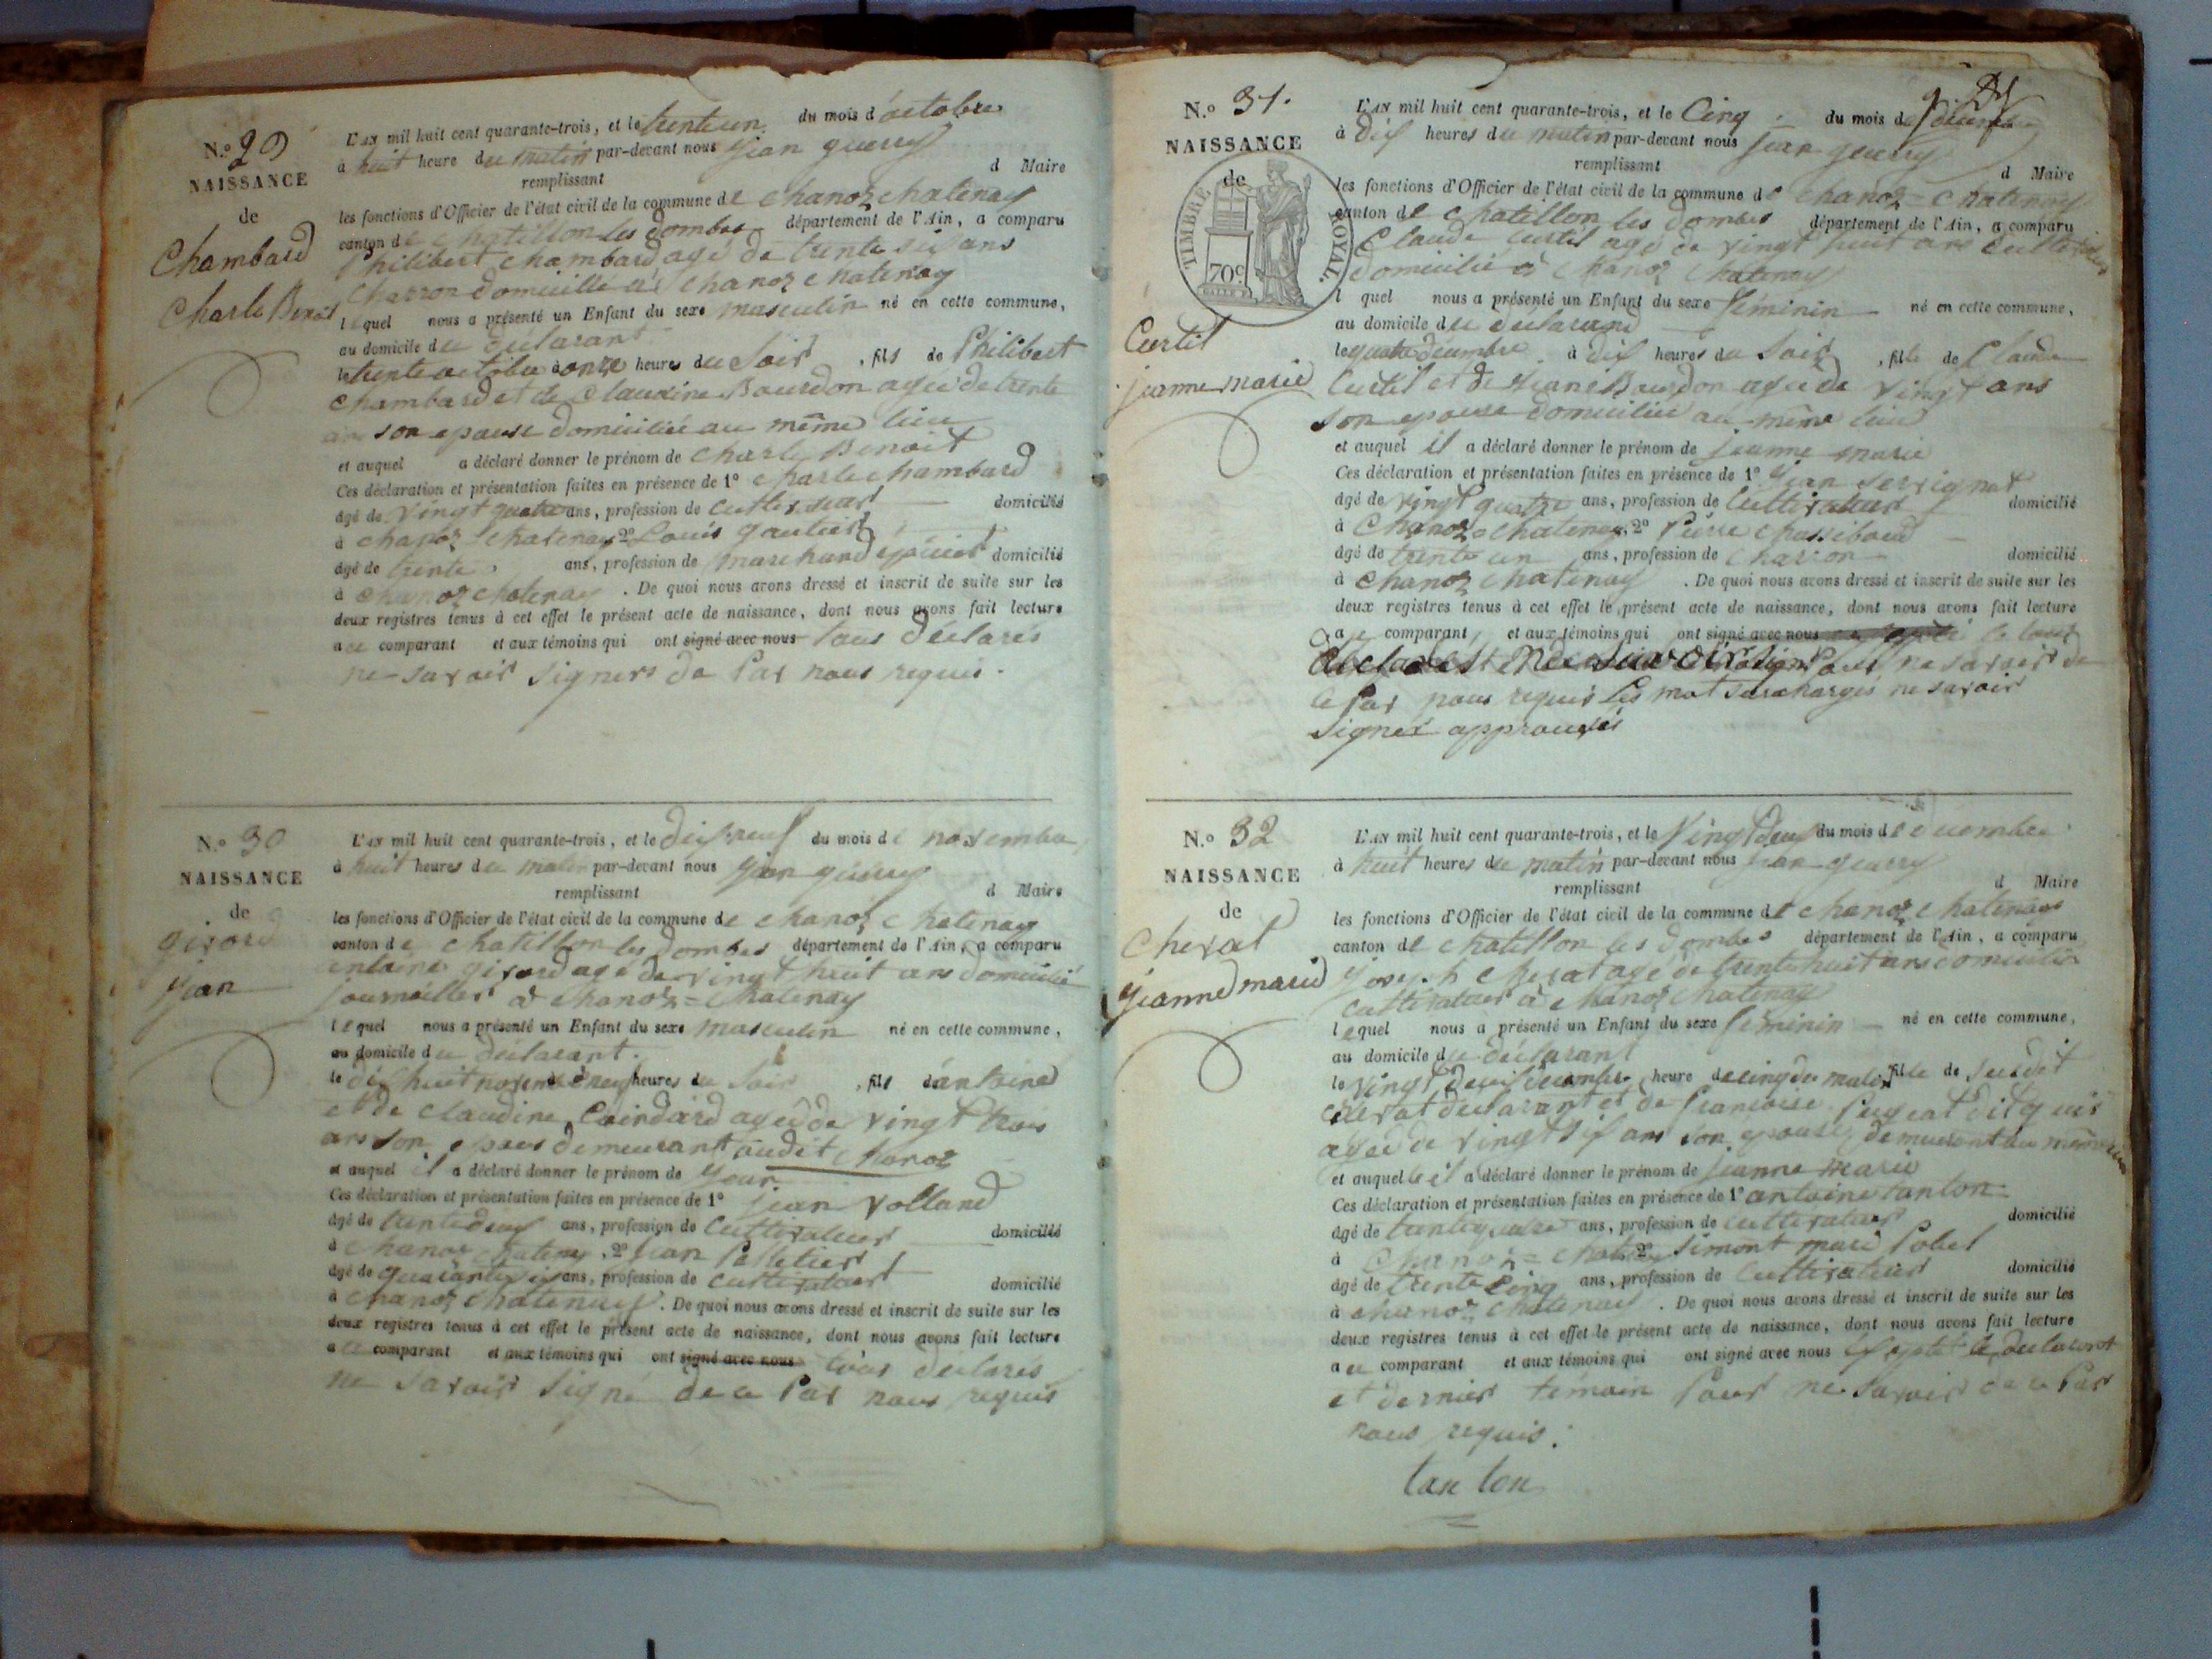 N.º 29
NAISSANCE
de
Chambard
Charle Benoit
L'AN mil huit cent quarante-trois, et le trente un du mois d'octobre
à huit heure du matin par-devant nous Jean guerry
remplissant d Maire
les fonctions d'Officier de l'état civil de la commune de chanoz chatenay
canton de chatillon les dombes département de l'Ain, a comparu
Philibert chambard agé de trente six ans
charron domicillé à chanoz chatenay
lequel nous a présenté un Enfant du sexe masculin né en cette commune,
au domicile du declarant
le trente octobre à onze heures du soir, fils de Philibert
chambard et de claudine Bourdon agée de trente
ans son epouse domiciliée au même lieu
et auquel a déclaré donner le prénom de charle Benoit
Ces déclaration et présentation faites en présence de 1º charle chambard
âgé de vingt quatre ans, profession de cultivateur domicilié
à chanoz chatenay 2º Louis gautier
âgé de trente ans, profession de marchand epicier domicilié
à chanoz chatenay. De quoi nous avons dressé et inscrit de suite sur les
deux registres tenus à cet effet le présent acte de naissance, dont nous avons fait lecture
au comparant et aux témoins qui ont signé avec nous tous déclarés
ne savoir signers de Par nous requis.
N.º 30
NAISSANCE
de
girard
Jean
L'AN mil huit cent quarante-trois, et le dix neuf du mois de novembre
à huit heures du matin par-devant nous Jean guerry
remplissant d Maire
les fonctions d'Officier de l'état civil de la commune de chanoz chatenay
canton de chatillon les dombes département de l'Ain, a comparu
antoine girard agé de vingt huit ans domicilié
journallier à chanoz=chatenay
lequel nous a présenté un Enfant du sexe masculin né en cette commune,
au domicile du déclarant.
le dix huit novembre à neuf heures du soir, fils d'antoine
et de claudine agée de vingt trois
ans son epous demeurant audit chanoz
et auquel il a déclaré donner le prénom de Jean
Ces déclaration et présentation faites en présence de 1º jean volland
âgé de trente deux ans, profession de cultivateur domicilié
à chanoz chatenay, 2º Jean Pelletier
âgé de quarante ans, profession de cultivateur domicilié
à chanoz chatenay. De quoi nous avons dressé et inscrit de suite sur les
deux registres tenus à cet effet le présent acte de naissance, dont nous avons fait lecture
au comparant et aux témoins qui ont signé avec nous tous declarés
ne savoir signé de ce Par nous requis
N.º 31.
NAISSANCE
de
TIMBRE ROYAL.
70c
Curtil
jeanne marie
L'AN mil huit cent quarante-trois, et le Cinq du mois de décembre
à dix heures du matin par-devant nous jean guerry
remplissant d Maire
les fonctions d'Officier de l'état civil de la commune de chanoz=chatenay
canton de chatillon les dombes département de l'Ain, a comparu
Claude curtil agé de vingt huit ans cultivateur
domicilié à chanoz chatenay
l quel nous a présenté un Enfant du sexe féminin né en cette commune,
au domicile du declarant
le quatre décembre à dix heures du soir, fille de Claude
Curtil et de Bourdon agée de vingt ans
son epouse domiciliée au même lieu
et auquel il a déclaré donner le prénom de jeanne marie
Ces déclaration et présentation faites en présence de 1º Jean servignat
âgé de vingt quatre ans, profession de cultivateur domicilié
à chanoz=chatenay, 2º Pierre
âgé de trente un ans, profession de charron domicilié
à chanoz chatenay. De quoi nous avons dressé et inscrit de suite sur les
deux registres tenus à cet effet le présent acte de naissance, dont nous avons fait lecture
au comparant, et aux témoins qui ont signé avec nous
ne savoir de
ce Par nous requis les mot surchargés ne savoir
signer approuvés
N.º 32
NAISSANCE
de
Cherat
jeanne marie
L'AN mil huit cent quarante-trois, et le vingt deux du mois de decembre
à huit heures du matin par-devant nous jean guerry
remplissant d Maire
les fonctions d'Officier de l'état civil de la commune de chanoz chatenay
canton de chatillon les dombes département de l'Ain, a comparu
Joseph cherat agé de trente huit ans domicilié
cultivateur à chanoz chatenay
lequel nous a présenté un Enfant du sexe féminin né en cette commune,
au domicile du déclarant
le vingt deux décembre heure de cinq du matin fille de susdit
cherat declarant et de francoise
agée de vingt six ans son epouse demeurant au même lieu
et auquelle il a déclaré donner le prénom de jeanne marie
Ces déclaration et présentation faites en présence de 1º antoine tanton
âgé de trente quatre ans, profession de cultivateur domicilié
à chanoz=chatenay 2º simont mari Pobel
âgé de trente cinq ans, profession de cultivateur domicilié
à chanoz chatenay. De quoi nous avons dressé et inscrit de suite sur les
deux registres tenus à cet effet le présent acte de naissance, dont nous avons fait lecture
au comparant et aux témoins qui ont signé avec nous le declarant
et dernier témoin Pour ne savoir de ce Par
nous requis.
tanton